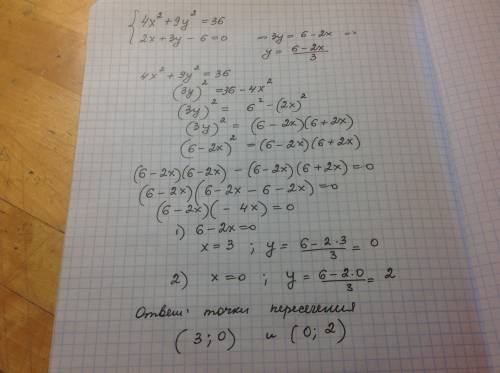 { 4x² + 9y² = 36
2x + 3y − 6 = 0 ⇒ 3y = 6 − 2x ⇒
y = (6 − 2x)/3
4x² + 9y² = 36
(3y)² = 36 − 4x²
(3y)² = 6² − (2x)²
(3y)² = (6 − 2x)(6 + 2x)
(6 − 2x)² = (6 − 2x)(6 + 2x)
(6 − 2x)(6 − 2x) − (6 − 2x)(6 + 2x) = 0
(6 − 2x)(6 − 2x − 6 − 2x) = 0
(6 − 2x)(− 4x) = 0
1) 6 − 2x = 0
x = 3 ; y = (6 − 2·3)/3 = 0
2) x = 0 ; y = (6 − 2·0)/3 = 2
Ответ: точки пересечения
(3 ; 0) и (0 ; 2)